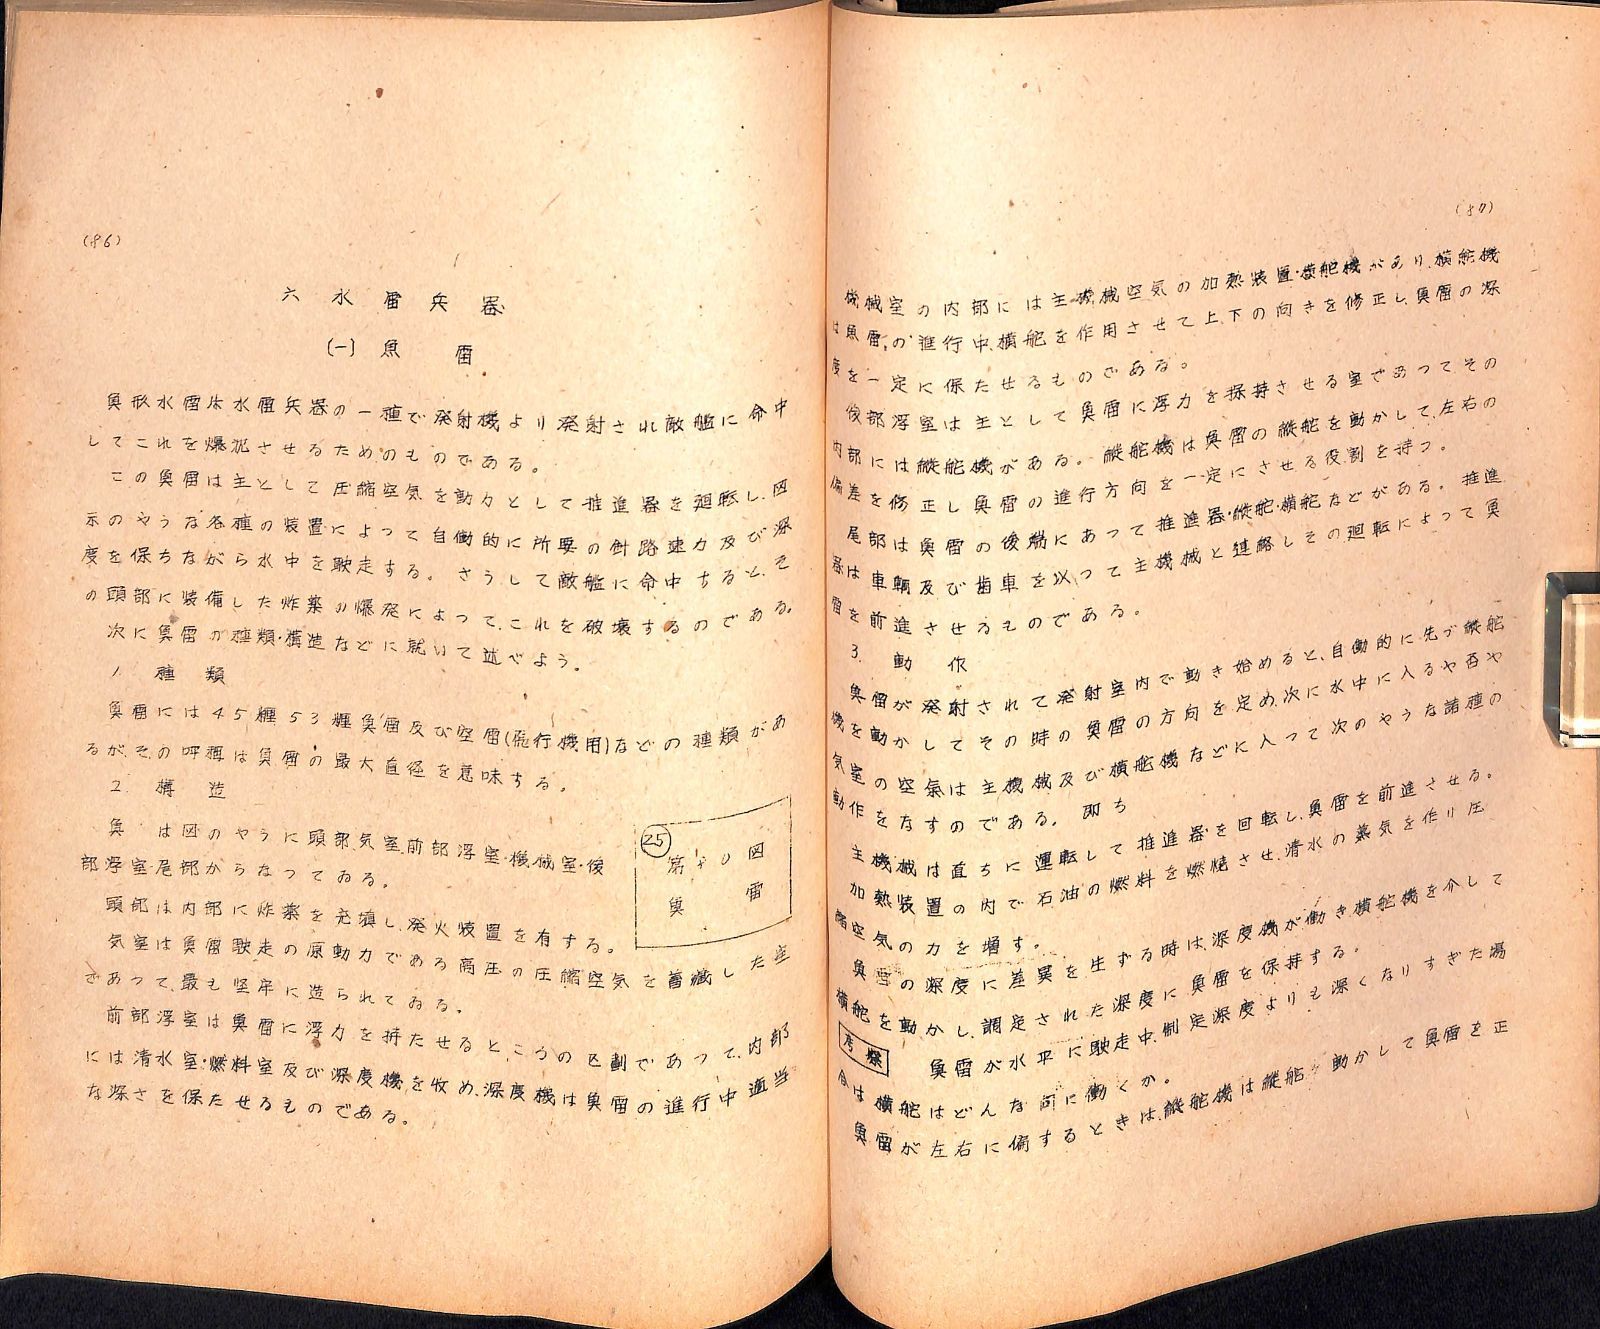 (86)
六 水雷兵器
(一) 魚 雷
魚形水雷は水雷兵器の一種で発射機より発射され敵艦に命中
してこれを爆沈させるためのものである。
この魚雷は主として圧縮空気を動力として推進器を廻転し、図
示のやうな各種の装置によって自働的に所要の針路速力及び深
度を保ちながら水中を駛走する。さうして敵艦に命中すると、そ
の頭部に装備した炸薬の爆発によって、これを破壊するのである。
次に魚雷の種類・構造などに就いて述べよう。
1 種 類
魚雷には45糎53糎魚雷及び空雷(飛行機用)などの種類があ
るが、その呼称は魚雷の最大直径を意味する。
2. 構 造
魚 は図のやうに頭部、気室、前部浮室・機械室・後
部浮室尾部からなつてゐる。
(25)
第十九図
魚 雷
頭部は内部に炸薬を充填し、発火装置を有する。
気室は魚雷駛走の原動力である高圧の圧縮空気を蓄蔵した室
であつて、最も堅牢に造られてゐる。
前部浮室は魚雷に浮力を持たせると、こうの区劃であって、内部
には清水室・燃料室及び深度機を收め、深度機は魚雷の進行中適当
な深さを保たせるものである。
(87)
機械室の内部には主機械空気の加熱装置・横舵機があり、横舵機
は魚雷の進行中、横舵を作用させて上下の向きを修正し、魚雷の深
度を一定に保たせるものである。
後部浮室は主として魚雷に浮力を保持させる室であつてその
内部には縦舵機がある。縦舵機は魚雷の縦舵を動かして、左右の
偏差を修正し魚雷の進行方向を一定にさせる役割を持つ。
尾部は魚雷の後端にあって推進器・縦舵・横舵などがある。推進
器は車輌及び歯車を以つて主機械と連絡しその廻転によって魚
雷を前進させるものである。
3. 動 作
魚雷が発射されて発射室内で動き始めると、自働的に先づ縦舵
機を動かしてその時の魚雷の方向を定め、次に水中に入るや否や
気室の空気は主機械及び横舵機などに入って次のやうな諸種の
動作をなすのである。即ち
主機械は直ちに運転して推進器を回転し、魚雷を前進させる。
加熱装置の内で石油の燃料を燃焼させ、清水の蒸気を作り圧
縮空気の力を増す。
魚雷の深度に差異を生ずる時は、深度機が働き横舵機を介して
横舵を動かし、調定された深度に魚雷を保持する。
考察 魚雷が水平に駛走中、制定深度よりも深くなりすぎた場
合は横舵はどんな向に働くか。
魚雷が左右に偏するときは、縦舵機は縦舵 動かして魚雷を正